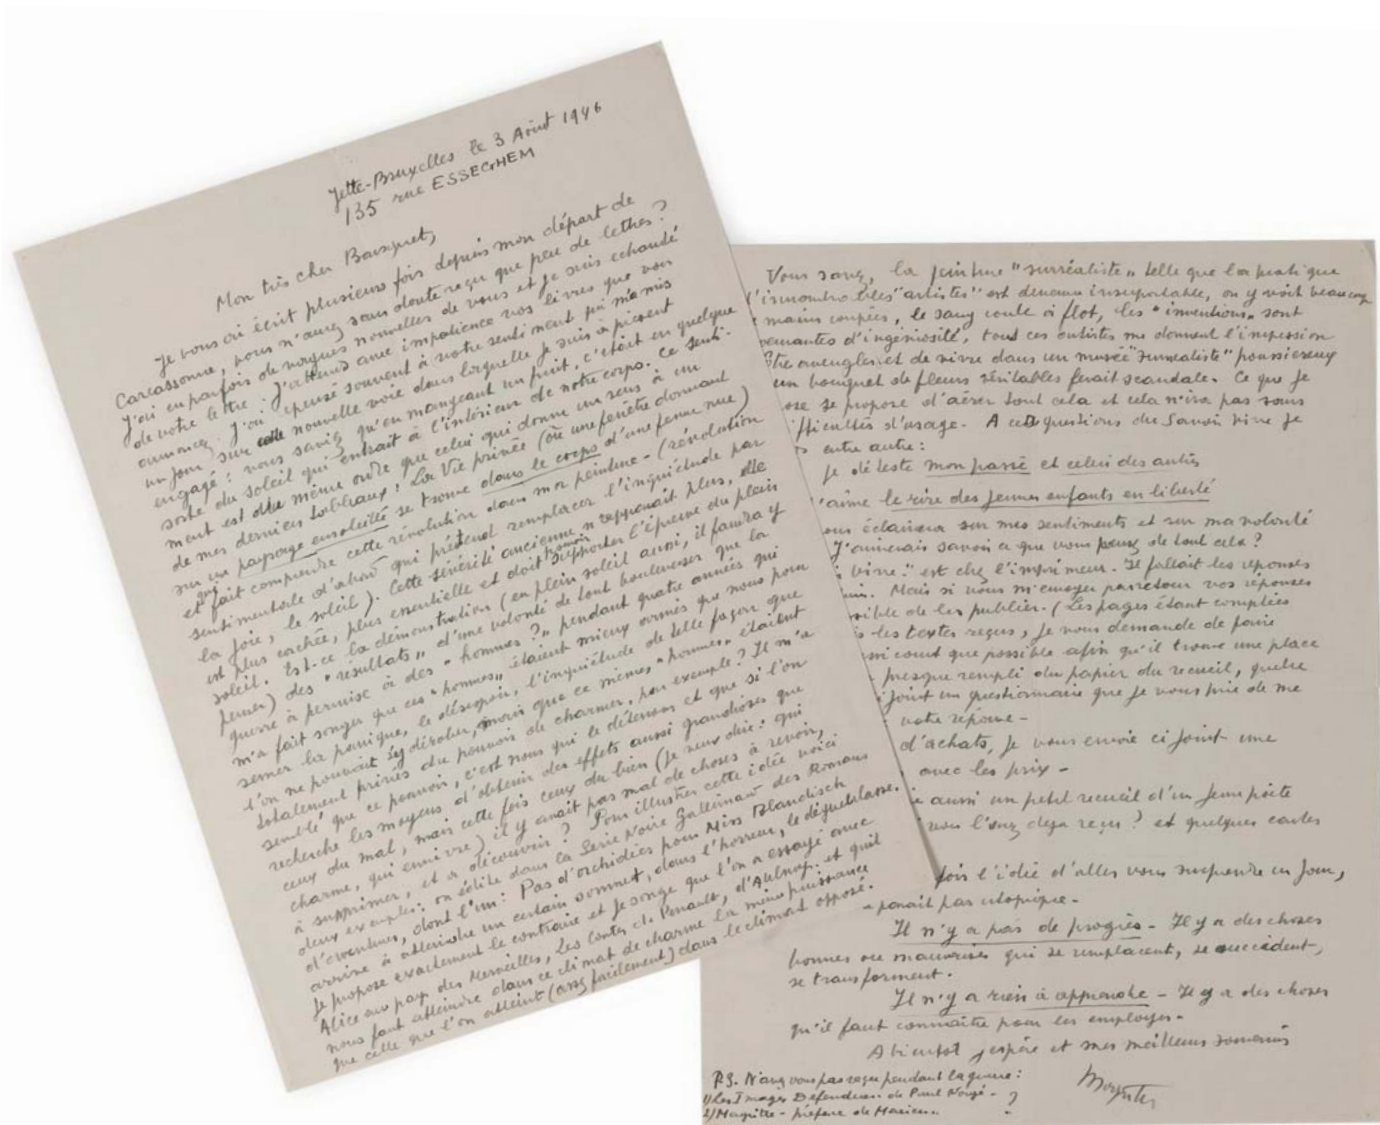 Jette-Bruxelles le 3 Août 1946
135 rue ESSEGHEM
Mon très cher Bousquet,
Je vous ai écrit plusieurs fois depuis mon départ de
Carcassonne, vous n'avez sans doute reçu que peu de lettres?
J'ai eu parfois de vagues nouvelles de vous et je suis enchanté
de votre lettre. J'attends avec impatience vos livres que vous
annoncez. J'ai pensé souvent à votre sentiment qui m'a mis
un jour sur cette nouvelle voie dans laquelle je suis à présent
engagé: vous saviez qu'en mangeant un fruit, c'était en quelque
sorte du soleil qui entrait à l'intérieur de notre corps. Ce senti-
ment est du même ordre que celui qui donne un sens à un
de mes derniers tableaux: La Vie privée (où une fenêtre donnant
sur un paysage ensoleillé se trouve dans le corps d'une femme nue)
et fait comprendre cette révolution dans ma peinture - (révolution
sentimentale d'abord qui prétend remplacer l'inquiétude par
la joie, le soleil). Cette sérénité ancienne n'apparait plus, elle
est plus cachée, plus essentielle et doit pouvoir supporter l'épreuve du plein
soleil. Est-ce la démonstration (en plein soleil aussi, il faudra y
penser) des "résultats" d'une volonté de tout bouleverser que la
guerre a permise à des "hommes?" pendant quatre années qui
m'a fait songer que ces "hommes" étaient mieux armés que nous pour
semer la panique, le désespoir, l'inquiétude de telle façon que
l'on ne pouvait s'y dérober, mais que ce mêmes "hommes" étaient
totalement privés du pouvoir de charmer, par exemple? Il m'a
semblé que ce pouvoir, c'est nous qui le détenons et que si l'on
recherche les moyens d'obtenir des effets aussi grandioses que
ceux du mal, mais cette fois ceux du bien (je veux dire: qui
charme, qui ennivre) il y avait pas mal de choses à revoir,
à supprimer, et à découvrir? Pour illustrer cette idée voici
deux exemples: on édite dans la Serie Noire Gallimard des Romans
d'aventures, dont l'un: Pas d'orchidées pour Miss Blandisch
arrive à atteindre un certain sommet, dans l'horreur, le dégueulasse.
Je propose exactement le contraire et je songe que l'on a essayé avec
Alice au pays des Merveilles, les Contes de Perrault, d'Aulnoy. et qu'il
nous faut atteindre dans ce climat de charme la même puissance
que celle que l'on atteint (assez facilement) dans le climat opposé.
Vous savez, la peinture "surréaliste" telle que la pratique
d'innombrables "artistes" est devenue insupportable, on y voit beaucoup
mains coupées, le sang coule à flot, les "inventions" sont
d'ingéniosité, tous ces artistes me donnent l'impression
aveugles et de vivre dans un musée "surréaliste" poussiereux
un bouquet de fleurs véritables ferait scandale. Ce que je
se propose d'aérer tout cela et cela n'ira pas sans
difficultés d'usage. A ces questions du Savoir vivre je
entre autre:
je déteste mon passé et celui des autres
j'aime le rire des jeunes enfants en liberté
éclairera sur mes sentiments et sur ma volonté
J'aimerais savoir ce que vous pensez de tout cela?
vivre" est chez l'imprimeur. Il fallait les réponses
Mais si vous m'envoyez par retour vos réponses
de les publier. (Les pages étant complées
les textes reçus, je vous demande de faire
court que possible afin qu'il trouve une place
presque rempli du papier du recueil,
joint un questionnaire que je vous prie de me
votre réponse -
d'achats, je vous envoie ci joint une
avec les prix -
aussi un petit recueil d'un jeune poète
vous l'avez deja reçu? et quelques cartes
fois l'idée d'aller vous surprendre un jour,
parait pas utopique -
Il n'y a pas de progrès - Il y a des choses
bonnes ou mauvaises qui se remplacent, se succèdent,
se transforment.
Il n'y a rien à apprendre - Il y a des choses
qu'il faut connaître pour les employer -
A bientot j'espère et mes meilleurs souvenirs
Magritte
P.S. N'avez vous pas reçu pendant la guerre:
1) Les Images Défendues de Paul Nougé -
2) Magritte - préface de Marien - ?